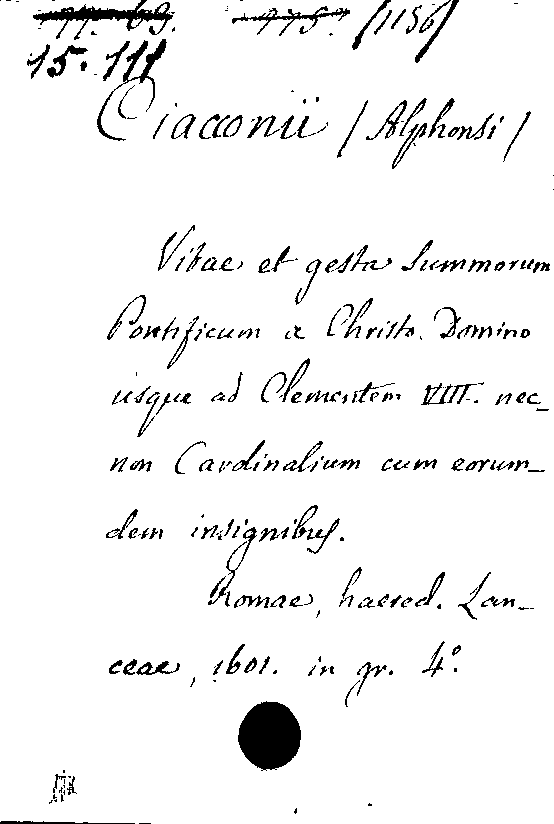 77. 69. 775. /1156/
15. 111
Ciacconii /Alphonsi/
Vitae et gesta Summorum
Pontificum a Christo Domino
usque ad Clementem VIII. nec_
non Cardinalium cum eorum_
dem insignibus.
Romae, haered. Lan_
ceae, 1601. in gr. 4°.